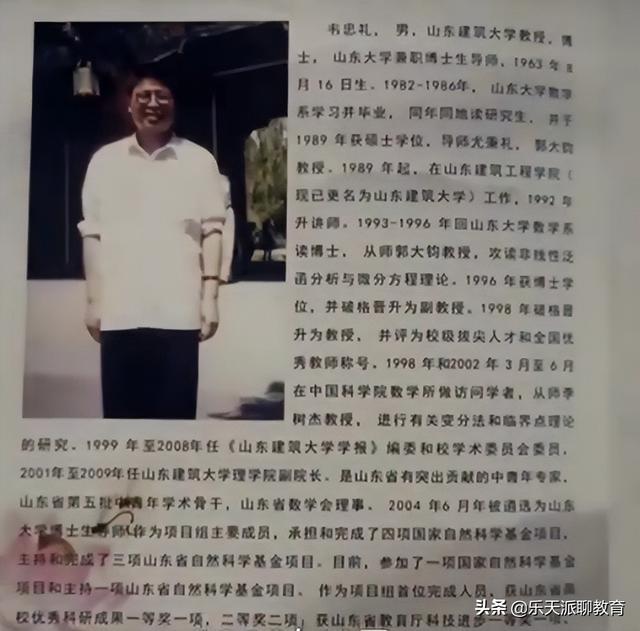 韦忠礼， 男，山东建筑大学教授，博
士， 山东大学兼职博士生导师，1963 年 8
月 16 日生．1982-1986年， 山东大学数学
系学习并毕业， 同年同地读研究生， 并于
1989 年获硕士学位，导师尤秉礼， 郭大钧
教授．1989 年起，在山东建筑工程学院（
现已更名为山东建筑大学）工作，1992 年
升讲师．1993-1996 年回山东大学数学系
读博士， 从师郭大钧教授，攻读非线性泛
函分析与微分方程理论．1996 年获博士学
位，并破格晋升为副教授．1998 年破格晋
升为教授， 并评为校级拔尖人才和全国优
秀教师称号．1998 年和2002 年 3 月至 6 月
在中国科学院数学所做访问学者，从师李
树杰教授， 进行有关变分法和临界点理论
的研究．1999 年至2008年任《山东建筑大学学报》编委和校学术委员会委员，
2001年至2009年任山东建筑大学理学院副院长．是山东省有突出贡献的中青年专家，
山东省第五批中青年学术骨干，山东省数学会理事． 2004 年6 月年被遴选为山东
大学博士生导师．作为项目组主要成员，承担和完成了四项国家自然科学基金项目，
主持和完成了三项山东省自然科学基金项目．目前，参加了一项国家自然科学基金
项目和主持一项山东省自然科学基金项目． 作为项目组首位完成人员，获山东省高
校优秀科研成果一等奖一项，二等奖二项；获山东省教育厅科技进步一等奖一项，
头条 @乐天派聊教育